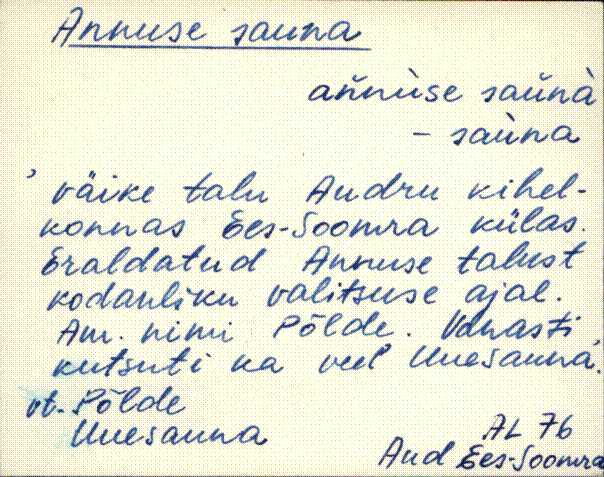 Annuse sauna
aǹnùse saùnà
- saùna
' väike talu Audru kihel-
konnas Ees-Soomra külas.
Eraldatud Annuse talust
kodanliku valitsuse ajal.
Am. nimi Põlde. Vanasti
kutsuti ka veel Uuesauna.
vt. Põlde
Uuesauna
AL 76
Aud Ees-Soomra